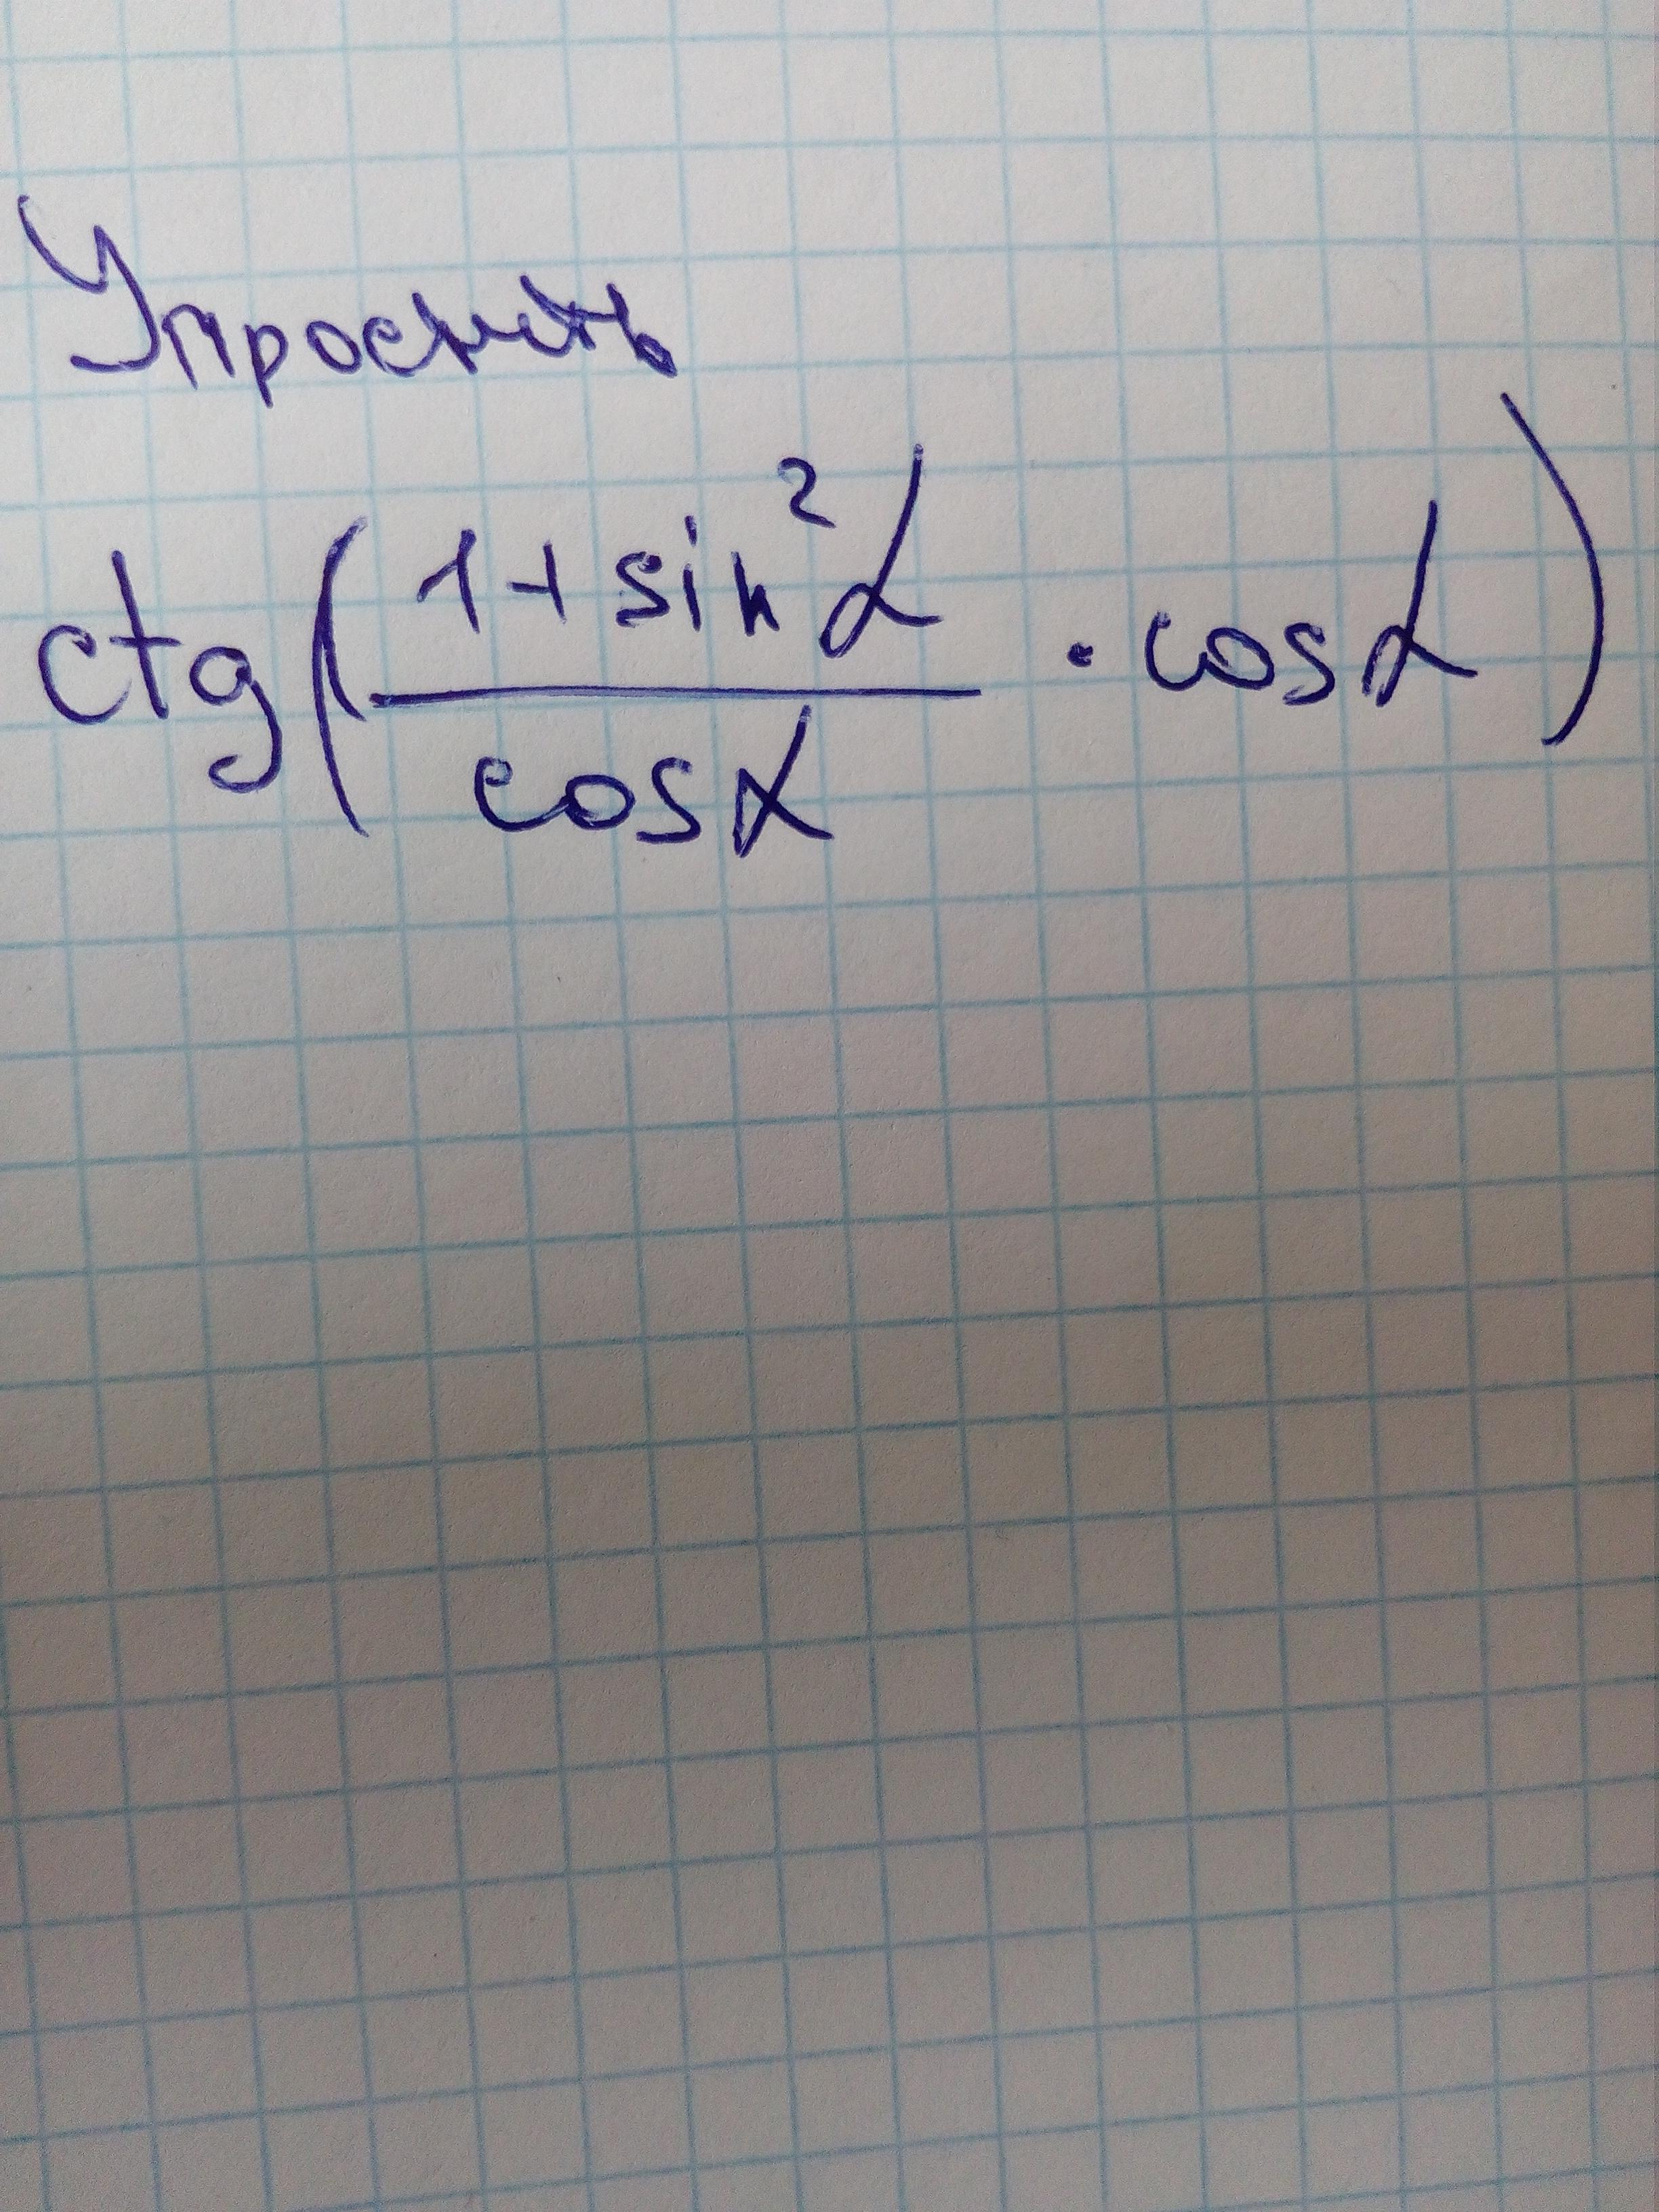 Упростить
ctg(\frac{1+sin²α}{cosα} · cosα)